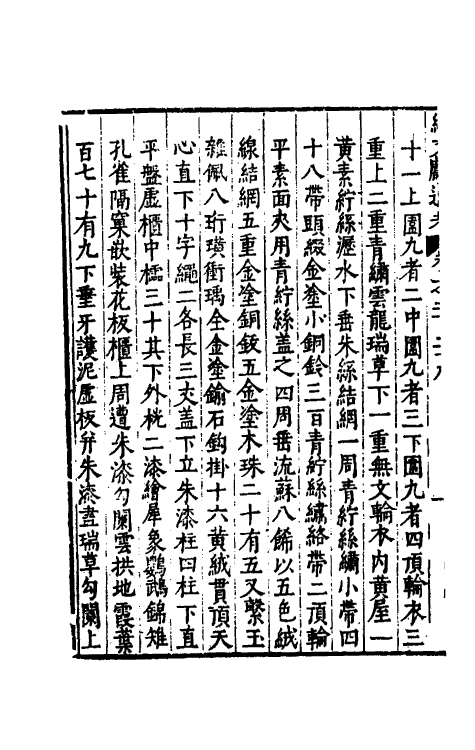 十一上圎九者二中圎九者三下圎九者四頂輪衣三
重上二重青繡雲龍瑞草下一重無文輪衣内黄屋一
黄素紵絲瀝水下垂朱絲結網一周青紵絲繡小帶四
十八帶頭綴金塗小銅鈴三百青紵絲繡絡帶二頂輪
平素面夾用青紵絲盖之四周垂流蘇八餙以五色絨
線結網五重金塗銅鈸五金塗木珠二十有五又繫玉
雜佩八珩璜衝瑀全金塗鍮石鈎掛十六黄絨貫頂天
心直下十字繩二各長三丈盖下立朱漆柱四柱下直
平盤虛櫃中櫺三十其下外桄二漆繪犀象鸚鵡錦雉
孔雀隔窠嵌裝花板櫃上周遭朱漆勾闌雲拱地霞葉
百七十有九下垂牙護泥虛板并朱漆畫瑞草勾闌上